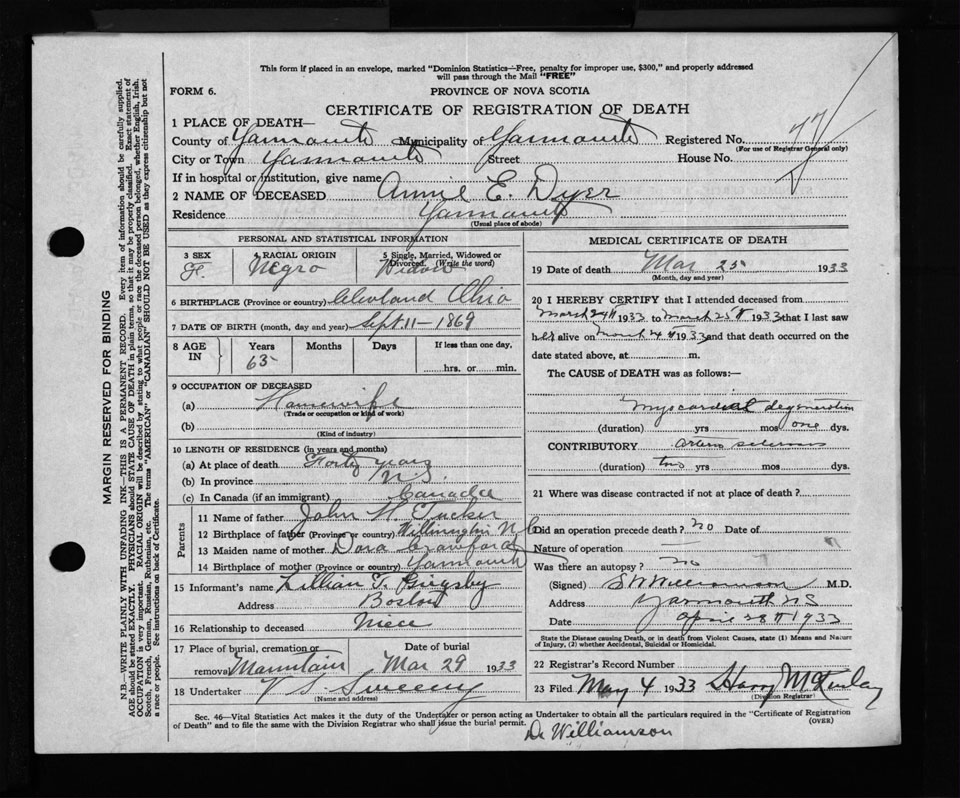 This form if placed in an envelope, marked "Dominion Statistics—Free, penalty for improper use, $300," and properly addressed
will pass through the Mail "FREE"
FORM 6.
PROVINCE OF NOVA SCOTIA
CERTIFICATE OF REGISTRATION OF DEATH
1 PLACE OF DEATH—
County of Yarmouth Municipality of Yarmouth Registered No. 77
(For use of Registrar General only)
City or Town Yarmouth Street House No.
If in hospital or institution, give name
2 NAME OF DECEASED Annie E. Dyer
Residence Yarmouth
(Usual place of abode)
PERSONAL AND STATISTICAL INFORMATION
3 SEX F. 4 RACIAL ORIGIN Negro 5 Single, Married, Widowed or Divorced. (Write the word) Widow
6 BIRTHPLACE (Province or country) Cleveland Ohio
7 DATE OF BIRTH (month, day and year) Sept. 11 - 1869
8 AGE IN Years 63 Months Days If less than one day, hrs. or min.
9 OCCUPATION OF DECEASED
(a) Housewife
(Trade or occupation or kind of work)
(b)
(Kind of industry)
10 LENGTH OF RESIDENCE (in years and months)
(a) At place of death Forty years
(b) In province N.S.
(c) In Canada (if an immigrant) Canada
Parents
11 Name of father John H. Tucker
12 Birthplace of father (Province or country) N.C.
13 Maiden name of mother Dora Crawford
14 Birthplace of mother (Province or country) Yarmouth
15 Informant's name Lillian F.
Address Boston
16 Relationship to deceased Niece
17 Place of burial, cremation or removal Mountain Date of burial Mar 29 1933
18 Undertaker V S Sweeny
(Name and address)
MEDICAL CERTIFICATE OF DEATH
19 Date of death Mar 25 1933
(Month, day and year)
20 I HEREBY CERTIFY that I attended deceased from
March 24th 1933 to March 25th 1933 that I last saw
her alive on March 24th 1933 and that death occurred on the
date stated above, at m.
The CAUSE of DEATH was as follows:—
myocardial degeneration
(duration) yrs mos one dys.
CONTRIBUTORY arterio sclerosis
(duration) two yrs mos dys.
21 Where was disease contracted if not at place of death?
Did an operation precede death? no Date of
Nature of operation
Was there an autopsy? no
(Signed) S W Williamson M.D.
Address Yarmouth NS
Date April 28th 1933
State the Disease causing Death, or in death from Violent Causes, state (1) Means and Nature
of Injury, (2) whether Accidental, Suicidal or Homicidal.
22 Registrar's Record Number
23 Filed May 4 1933 Harry McKinlay
(Division Registrar)
Sec. 46—Vital Statistics Act makes it the duty of the Undertaker or person acting as Undertaker to obtain all the particulars required in the "Certificate of Registration
of Death" and to file the same with the Division Registrar who shall issue the burial permit.
(OVER)
Dr Williamson
MARGIN RESERVED FOR BINDING
N.B.—WRITE PLAINLY WITH UNFADING INK—THIS IS A PERMANENT RECORD. Every item of information should be carefully supplied.
AGE should be stated EXACTLY. PHYSICIANS should STATE CAUSE OF DEATH in plain terms, so that it may be properly classified. Exact statement of
OCCUPATION is very important. RACIAL ORIGIN will be described by stating to what people or race the deceased person belonged, whether English, Irish,
Scotch, French, German, Russian, Ruthenian, etc. The terms "AMERICAN" or "CANADIAN" SHOULD NOT BE USED as they express citizenship but not
a race or people. See instructions on back of Certificate.